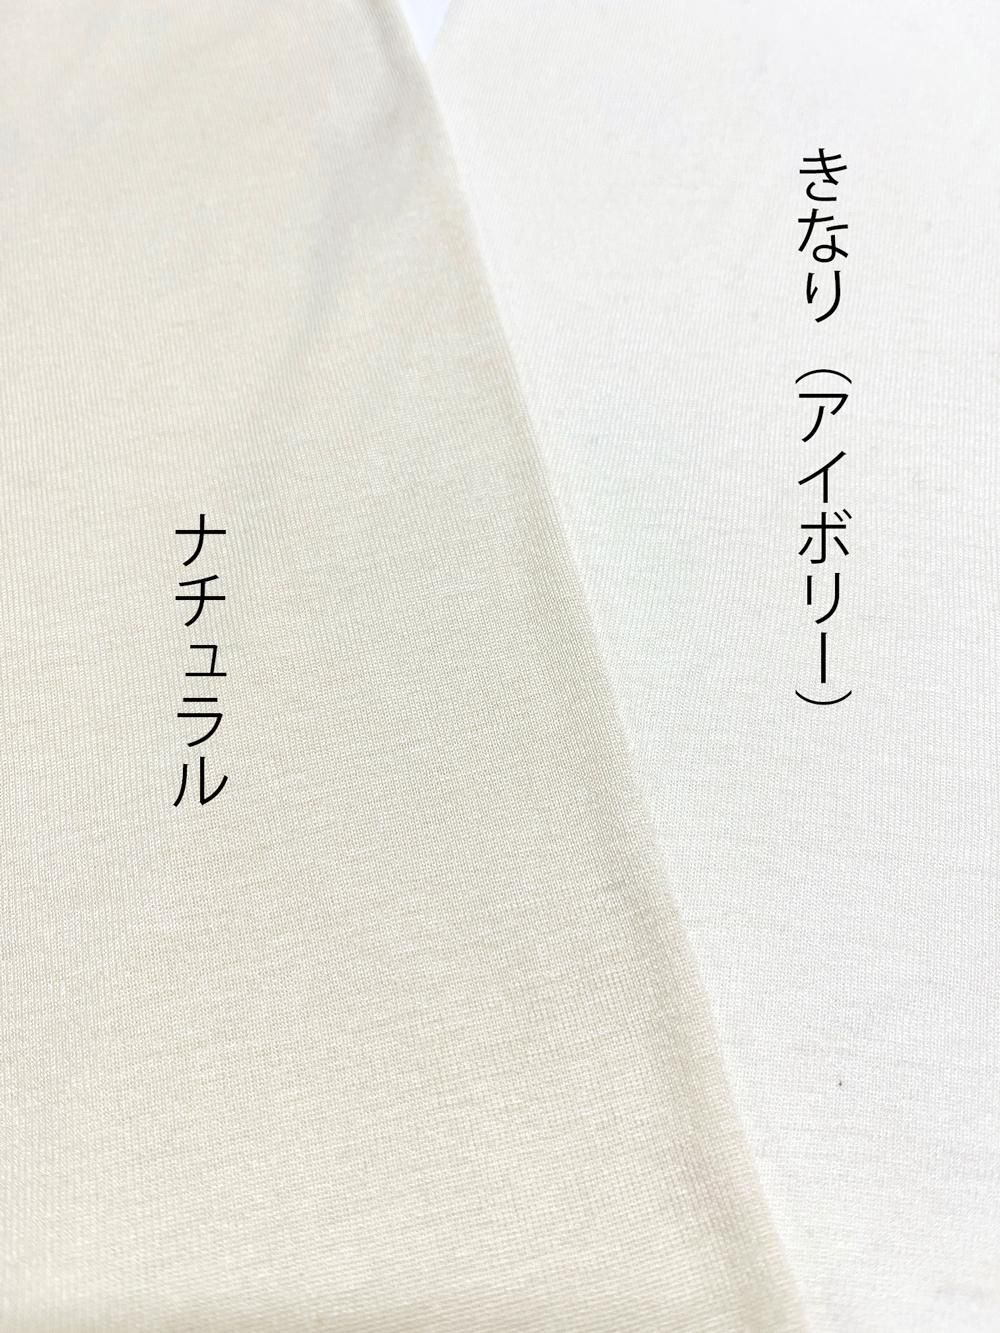 きなり（アイボリー）
ナチュラル